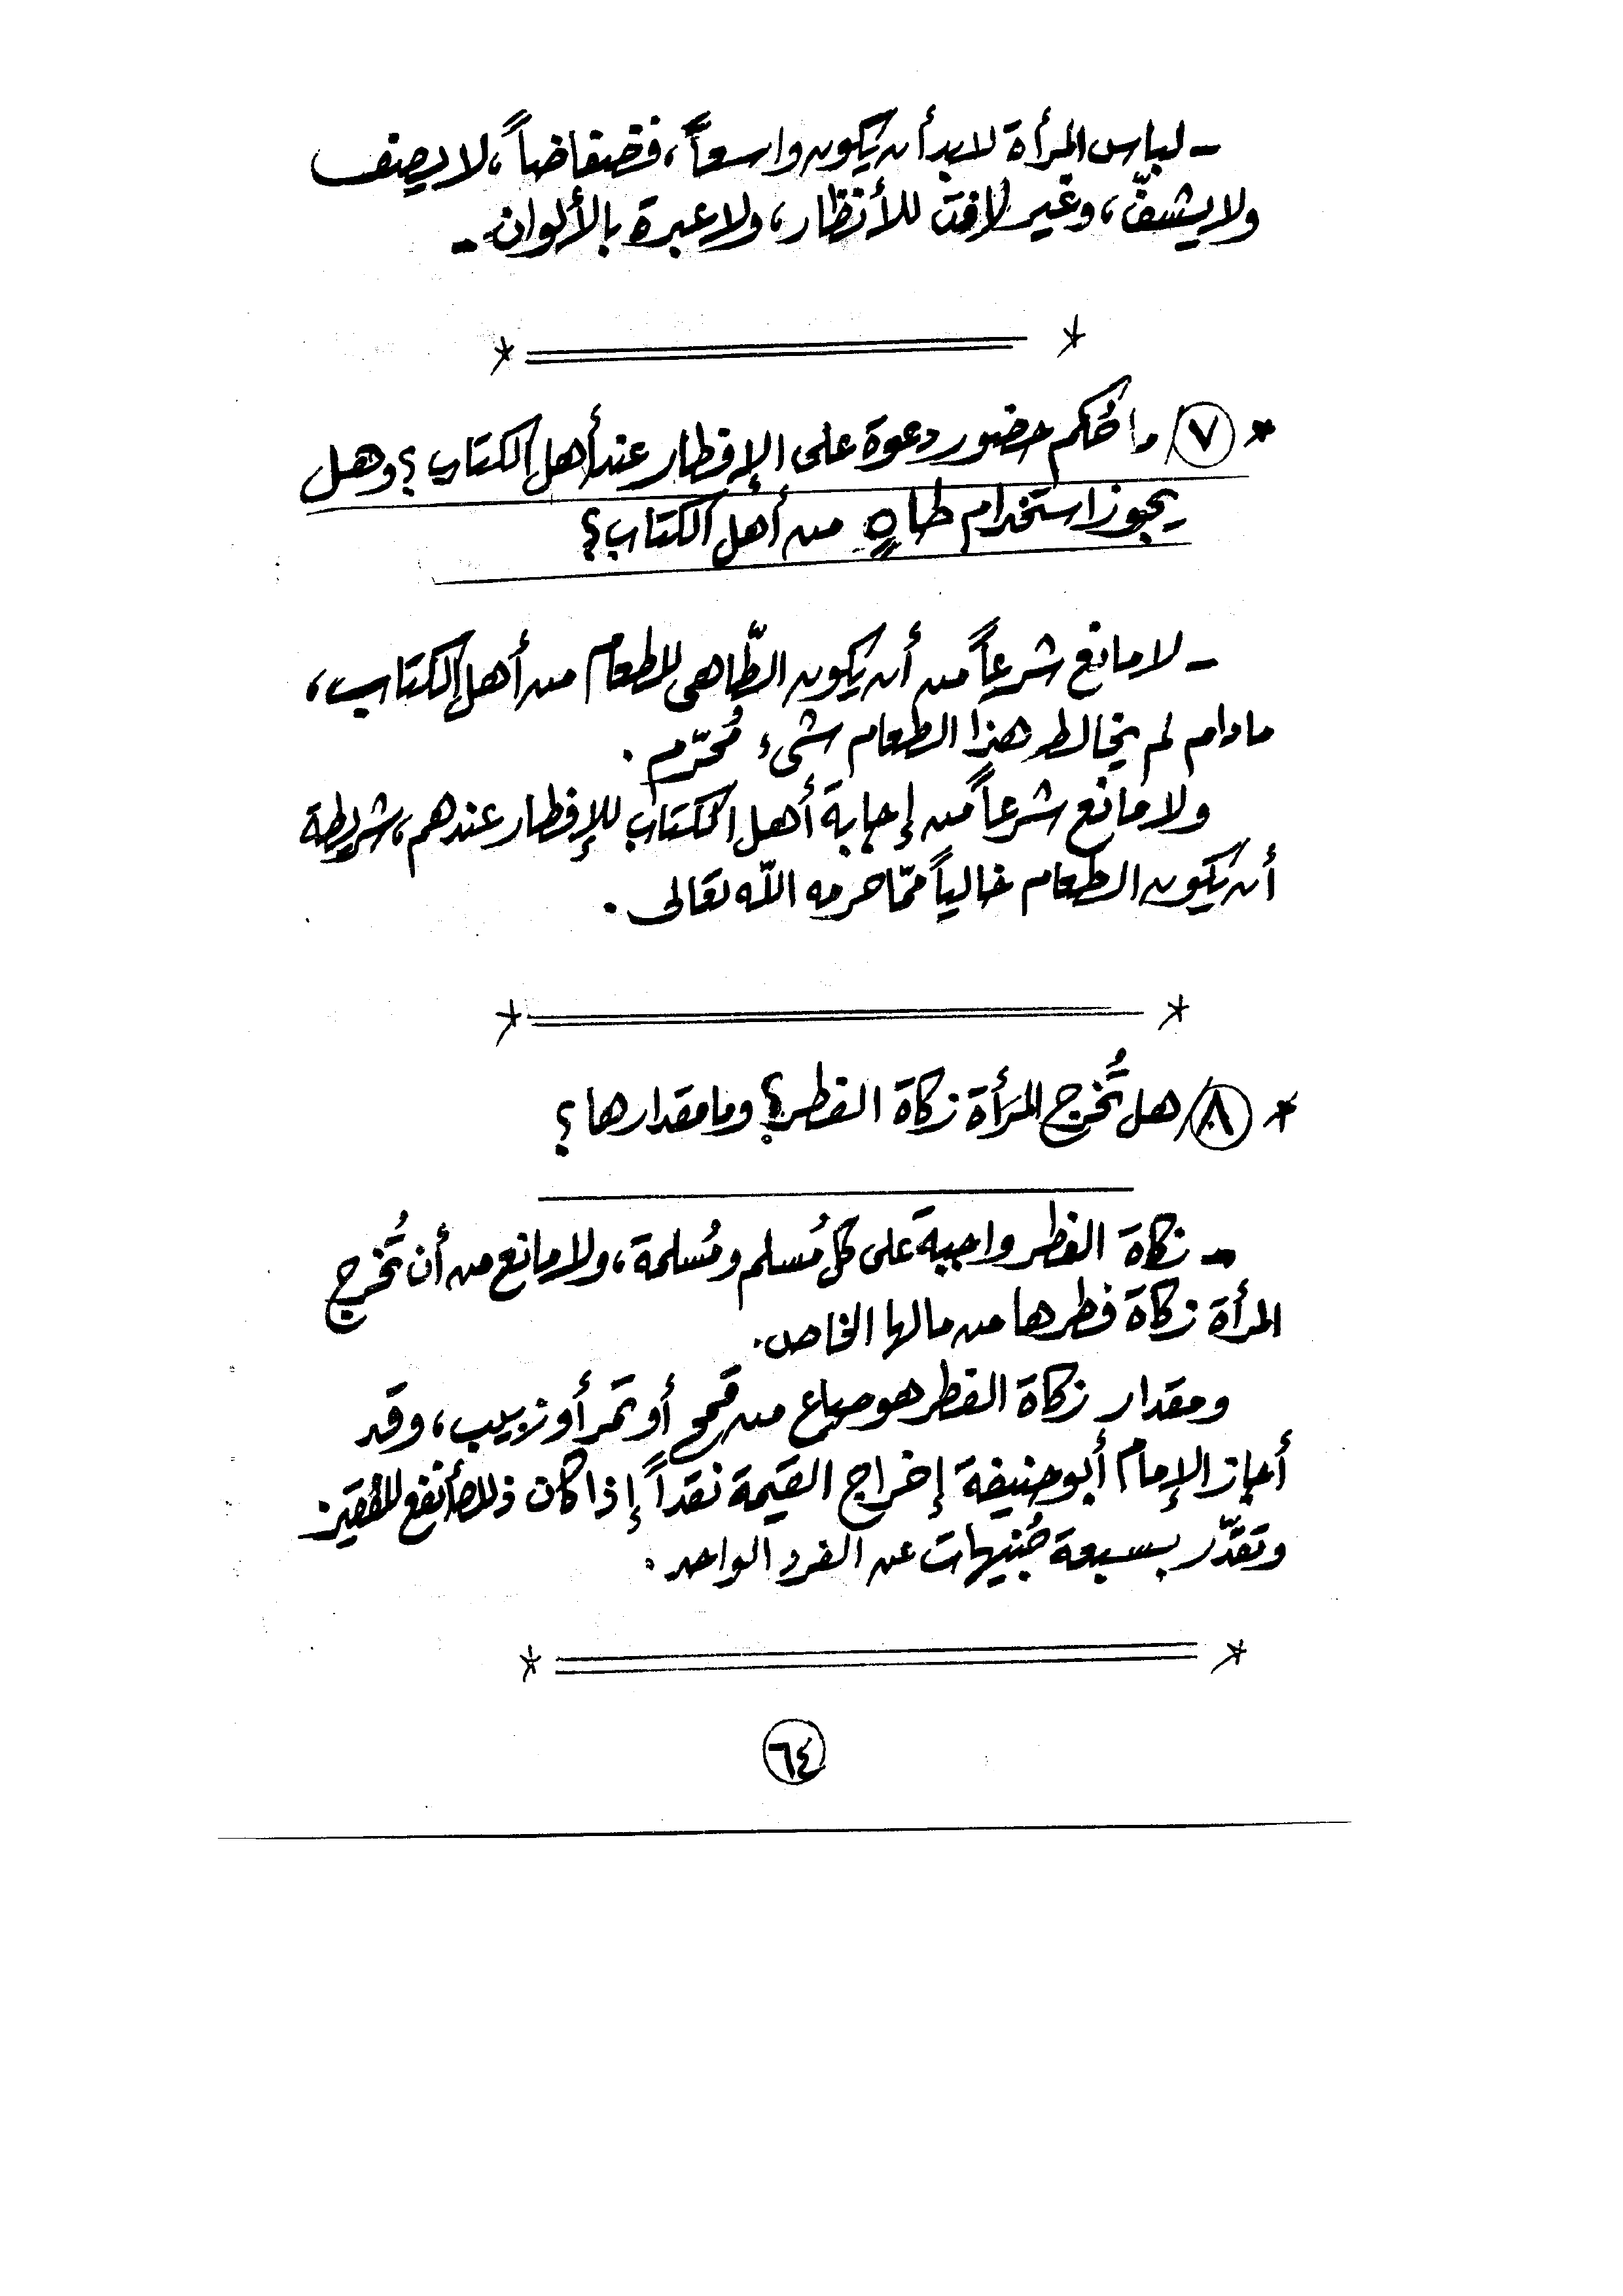 - لباس المرأة لابد أن يكون واسعاً، فضفاضاً، لا يصف
ولا يشفّ، وغير لافت للأنظار، ولا عبرة بالألوان -
* ٧/ ما حُكم حضور دعوة على الإفطار عند أهل الكتاب؟ وهل
يجوز استخدام طاهٍ من أهل الكتاب؟
- لا مانع شرعاً من أن يكون الطّاهى للطعام من أهل الكتاب،
مادام لم يخالط هذا الطعام شىء مُحرّم.
ولا مانع شرعاً من إجابة أهل الكتاب للإفطار عندهم، شريطة
أن يكون الطعام خالياً ممّا حرمه اللّه تعالى.
* ٨/ هل تُخرج المرأة زكاة الفطر؟ وما مقدارها؟
- زكاة الفطر واجبة على كل مُسلم ومُسلمة، ولا مانع من أن تُخرج
المرأة زكاة فطرها من مالها الخاص.
ومقدار زكاة الفطر هو صاع من قمح أو تمر أو زبيب، وقد
أجاز الإمام أبو حنيفة إخراج القيمة نقداً إذا كان ذلك أنفع للفقير.
وتقدّر بسبعة جُنيهات عن الفرد الواحد.
٦٤